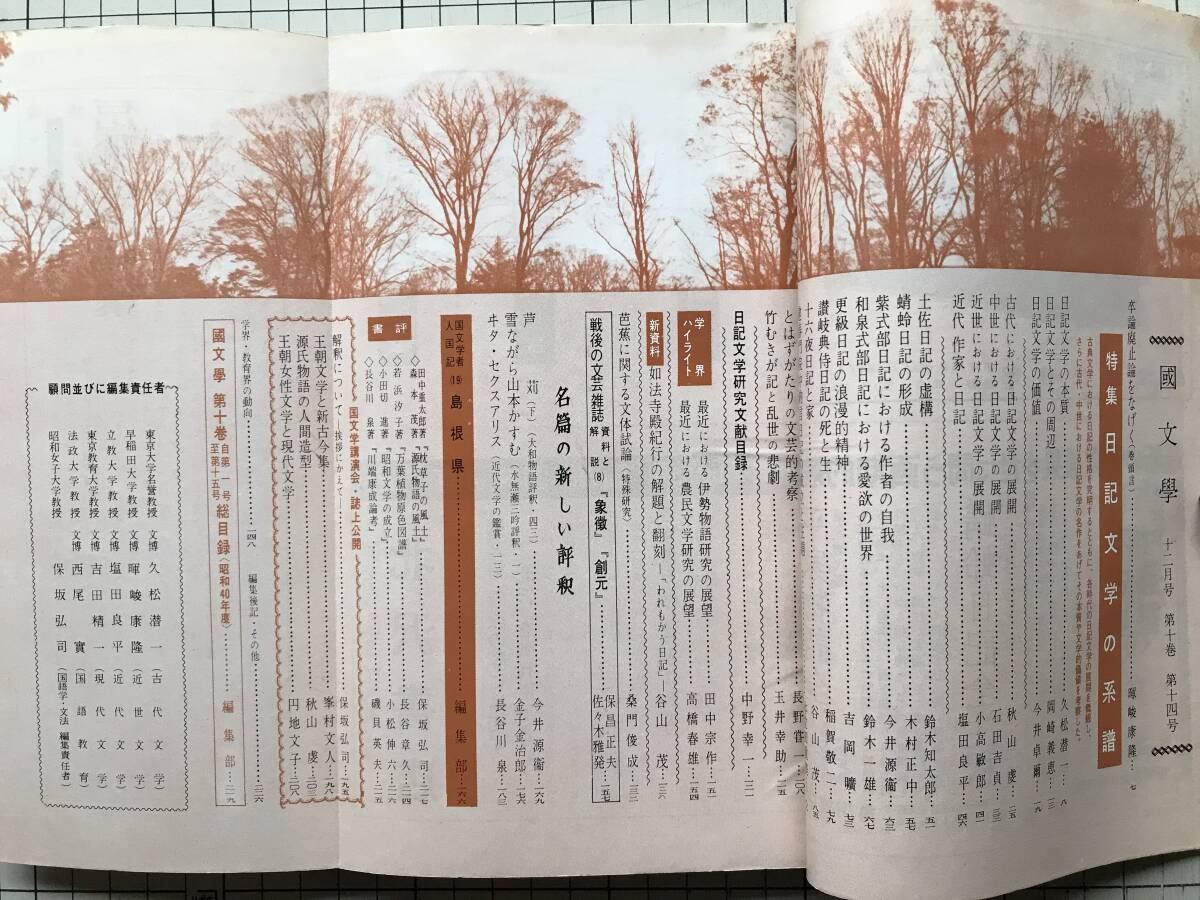 國文學 十二月号 第十巻 第十四号
卒論廃止論をなげく(巻頭言)……暉峻康隆…七
特集 日記文学の系譜
古典文学における日記の性格を究明するとともに、各時代の日記文学の展開を概観し、
さらに古代・中世における日記文学の名作をあげてその本質や文学的価値を考察した。
日記文学の本質……久松潜一…八
日記文学とその周辺……岡崎義恵…一三
日記文学の価値……今井卓爾…一九
古代における日記文学の展開……秋山虔…二五
中世における日記文学の展開……石田吉貞…三三
近世における日記文学の展開……小高敏郎…四一
近代作家と日記……塩田良平…四六
土佐日記の虚構……鈴木知太郎…五一
蜻蛉日記の形成……木村正中…五七
紫式部日記における作者の自我……今井源衞…六三
和泉式部日記における愛欲の世界……鈴木一雄…六七
更級日記の浪漫的精神……吉岡曠…七三
讃岐典侍日記の死と生……稲賀敬二…七九
十六夜日記と家……谷山茂…八五
とはずがたりの文芸的考察……長野甞一…一〇八
竹むきが記と乱世の悲劇……玉井幸助…一一五
日記文学研究文献目録……中野幸一…一二一
学界ハイライト
最近における伊勢物語研究の展望……田中宗作…一五一
最近における農民文学研究の展望……高橋春雄…一五四
新資料 如法寺殿紀行の解題と翻刻―「われもかう日記」―……谷山茂…一三六
芭蕉に関する文体試論(特殊研究)……桑門俊成…一三三
戦後の文芸雑誌 資料と解説(8)『象徴』『創元』……保昌正夫 佐々木雅発…一五七
名篇の新しい評釈
芦苅(下)(大和物語評釈・四三)……今井源衞…一六九
雪ながら山本かすむ(水無瀬三吟評釈・一)……金子金治郎…一七六
ヰタ・セクスアリス(近代文学の鑑賞・一三)……長谷川泉…一八三
国文学者人国記(19) 島根県……編集部…一六六
書評
◇田中重太郎著『枕草子の風土』
◇森本茂著『源氏物語の風土』……保坂弘司…二一七
◇若浜汐子著『万葉植物原色図譜』……長谷章久…二一四
◇小田切進著『昭和文学の成立』……小松伸六…二一六
◇長谷川泉著『川端康成論考』……磯貝英夫…二一五
国文学講演会・誌上公開
解釈について―挨拶にかえて―……保坂弘司…一九五
王朝文学と新古今集……峯村文人…一九八
源氏物語の人間造型……秋山虔…二〇三
王朝女性文学と現代文学……円地文子…二〇八
学界・教育界の動向……一四八 編集後記 その他……二二六
國文學 第十巻 自第一号至第十五号 総目録〈昭和40年度〉……編集部…二一九
顧問並びに編集責任者
東京大学名誉教授 文博 久松潜一(古代文学)
早稲田大学教授 文博 暉峻康隆(近世文学)
立教大学教授 文博 塩田良平(近代文学)
東京教育大学教授 文博 吉田精一(現代文学)
法政大学教授 文博 西尾實(国語教育)
昭和女子大学教授 保坂弘司(国語学・文法 編集責任者)